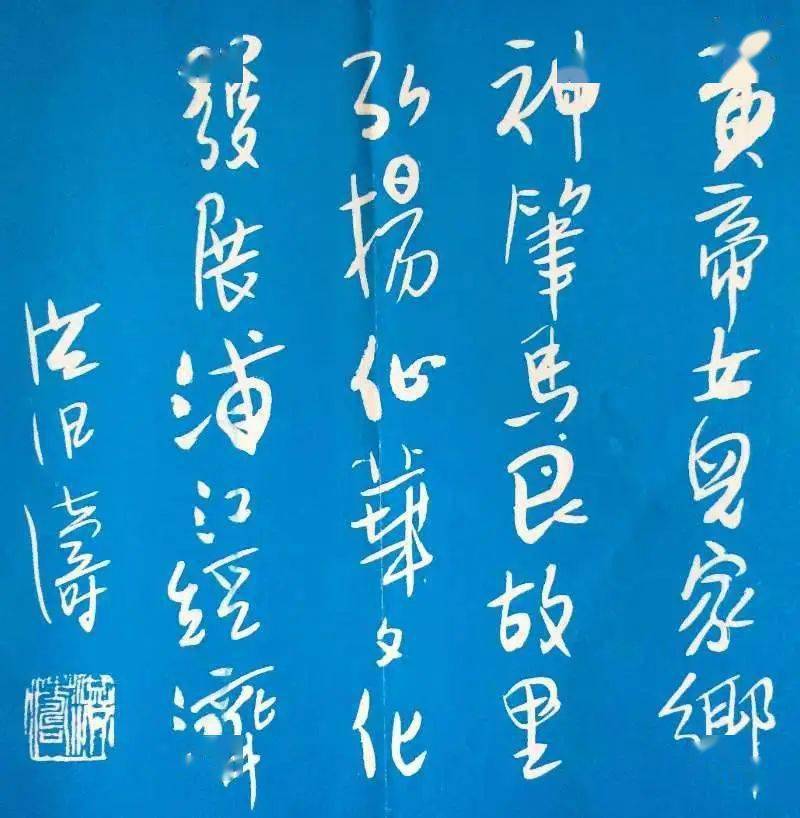 黃帝女兒家鄉
神筆馬良故里
弘揚仙華文化
發展浦江經濟
洪汛濤